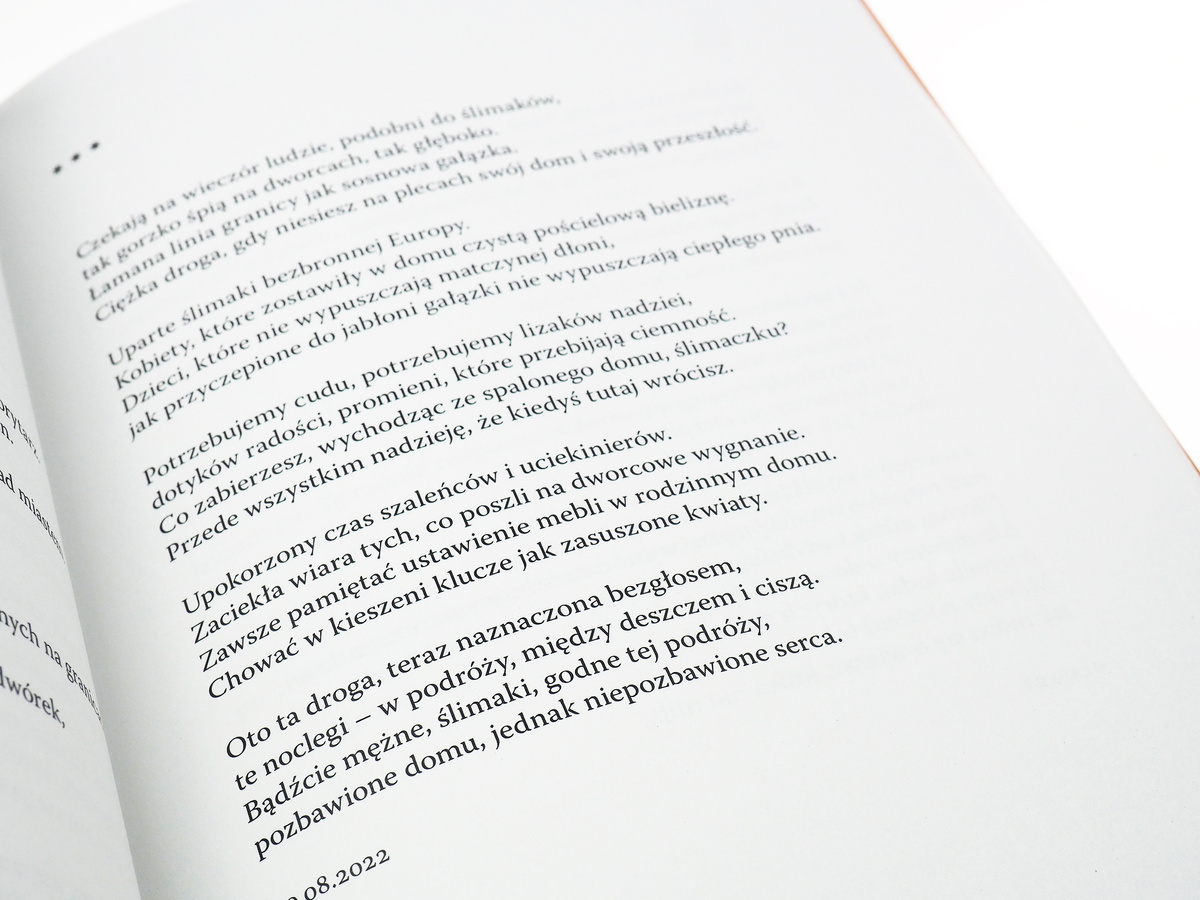 orytarz.
n.
ad miastem,
nych na granic
dwórek,
• • •
Czekają na wieczór ludzie, podobni do ślimaków,
tak gorzko śpią na dworcach, tak głęboko.
Łamana linia granicy jak sosnowa gałązka.
Ciężka droga, gdy niesiesz na plecach swój dom i swoją przeszłość.
Uparte ślimaki bezbronnej Europy.
Kobiety, które zostawiły w domu czystą pościelową bieliznę.
Dzieci, które nie wypuszczają matczynej dłoni,
jak przyczepione do jabłoni gałązki nie wypuszczają ciepłego pnia.
Potrzebujemy cudu, potrzebujemy lizaków nadziei,
dotyków radości, promieni, które przebijają ciemność.
Co zabierzesz, wychodząc ze spalonego domu, ślimaczku?
Przede wszystkim nadzieję, że kiedyś tutaj wrócisz.
Upokorzony czas szaleńców i uciekinierów.
Zaciekła wiara tych, co poszli na dworcowe wygnanie.
Zawsze pamiętać ustawienie mebli w rodzinnym domu.
Chować w kieszeni klucze jak zasuszone kwiaty.
Oto ta droga, teraz naznaczona bezgłosem,
te noclegi – w podróży, między deszczem i ciszą.
Bądźcie mężne, ślimaki, godne tej podróży,
pozbawione domu, jednak niepozbawione serca.
.08.2022